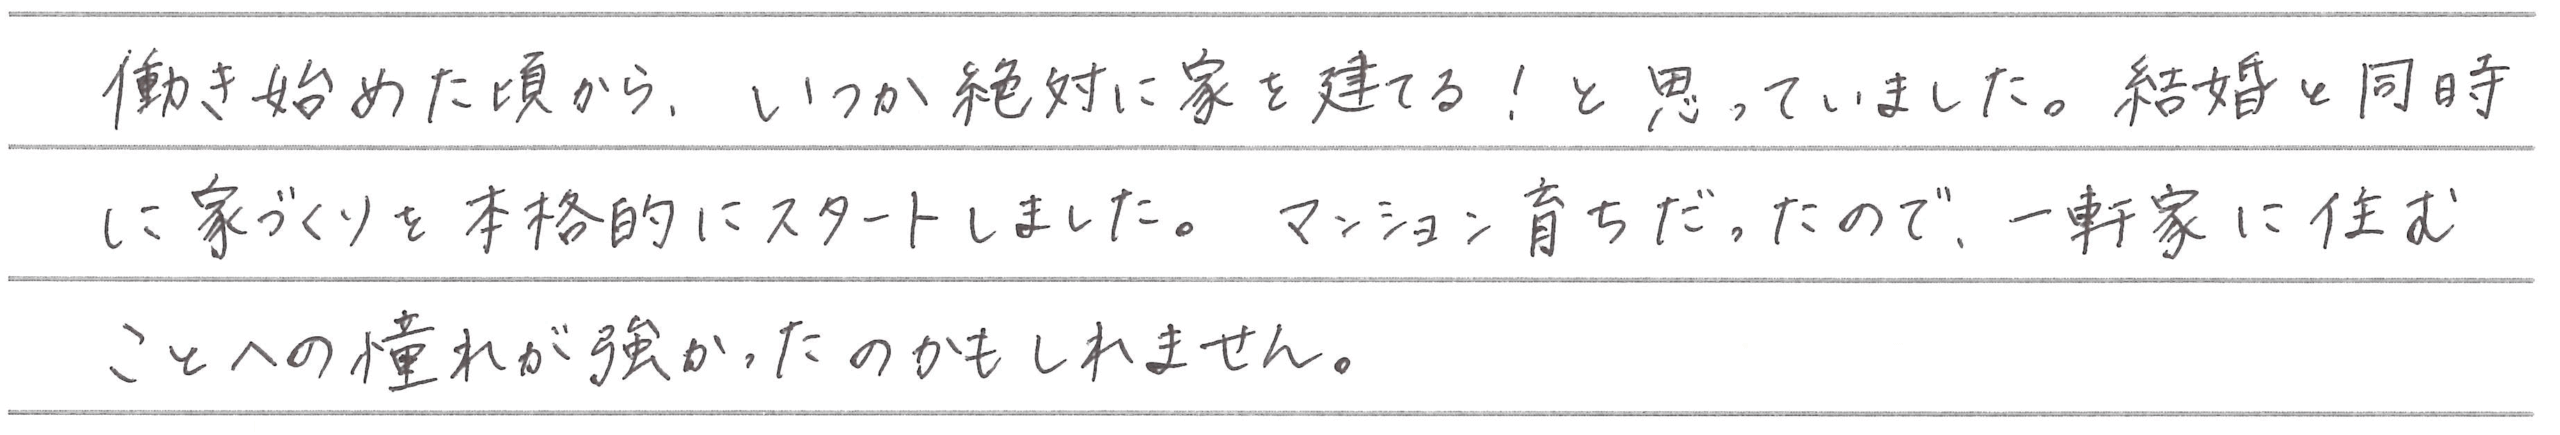 働き始めた頃から、いつか絶対に家を建てる！と思っていました。結婚と同時
に家づくりを本格的にスタートしました。マンション育ちだったので、一軒家に住む
ことへの憧れが強かったのかもしれません。